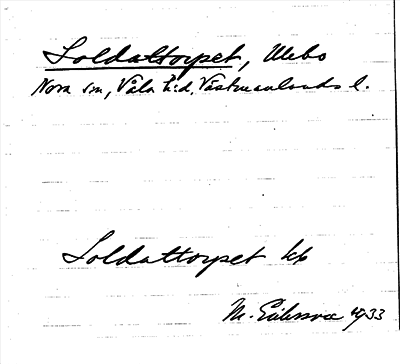 Soldattorpet, Mebo
Nora sn, Våla h:d, Västmanlands l.
Soldattorpet
M. Eriksson 1933